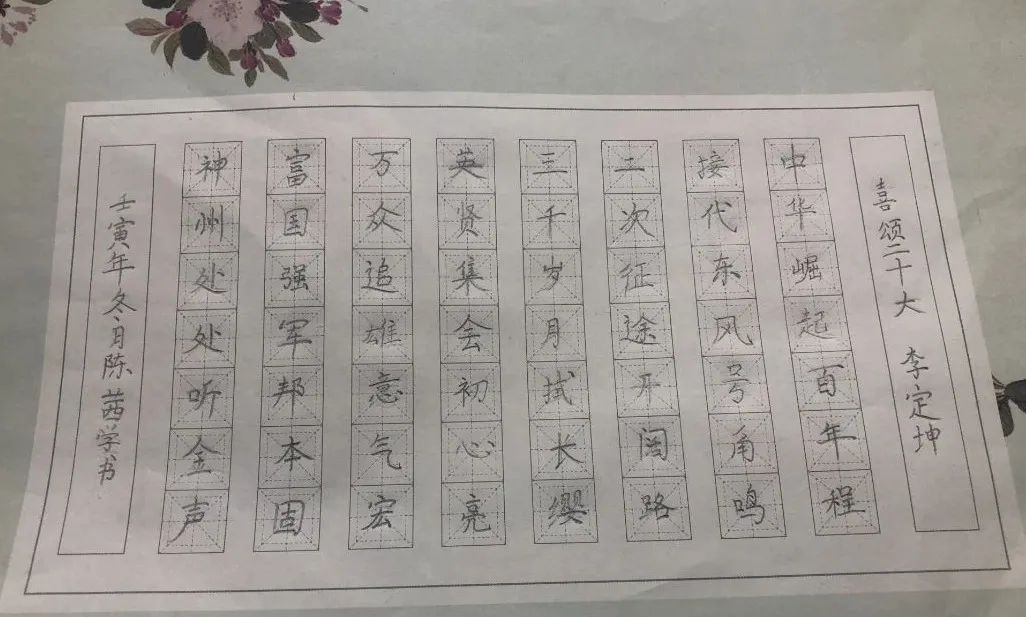 喜颂二十大 李定坤
中华崛起百年程
接代东风号角鸣
二次征途开阔路
三千岁月拭长缨
英贤集会初心亮
万众追雄意气宏
富国强军邦本固
神州处处听金声
壬寅年冬月陈茜学书